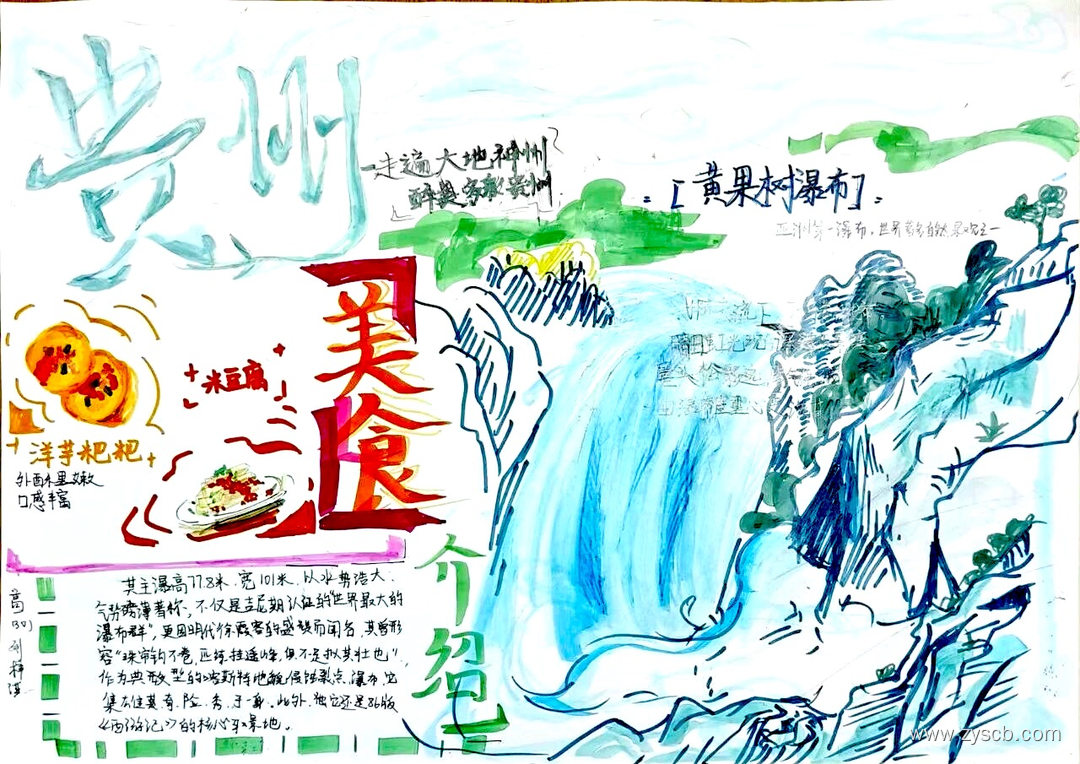 贵州
走遍大地神州
醉美多彩贵州
[黄果树瀑布]
亚洲第一瀑布,世界著名
美食
米豆腐
洋芋粑粑
外酥里嫩
口感丰富
介绍
其主瀑高77.8米,宽101米,以水势浩大、
气势磅薄著称,不仅是吉尼斯认证的"世界最大的
瀑布群",更因明代徐霞客的盛赞而闻名,其曾形
容"珠帘钩不卷,匹练挂遥峰,俱不足拟其壮也",
作为典型的喀斯特地貌侵蚀裂点瀑布,它
集雄奇、险、秀于一身,此外,它还是86版
《西游记》的核心取景地。
www.zyscb.com